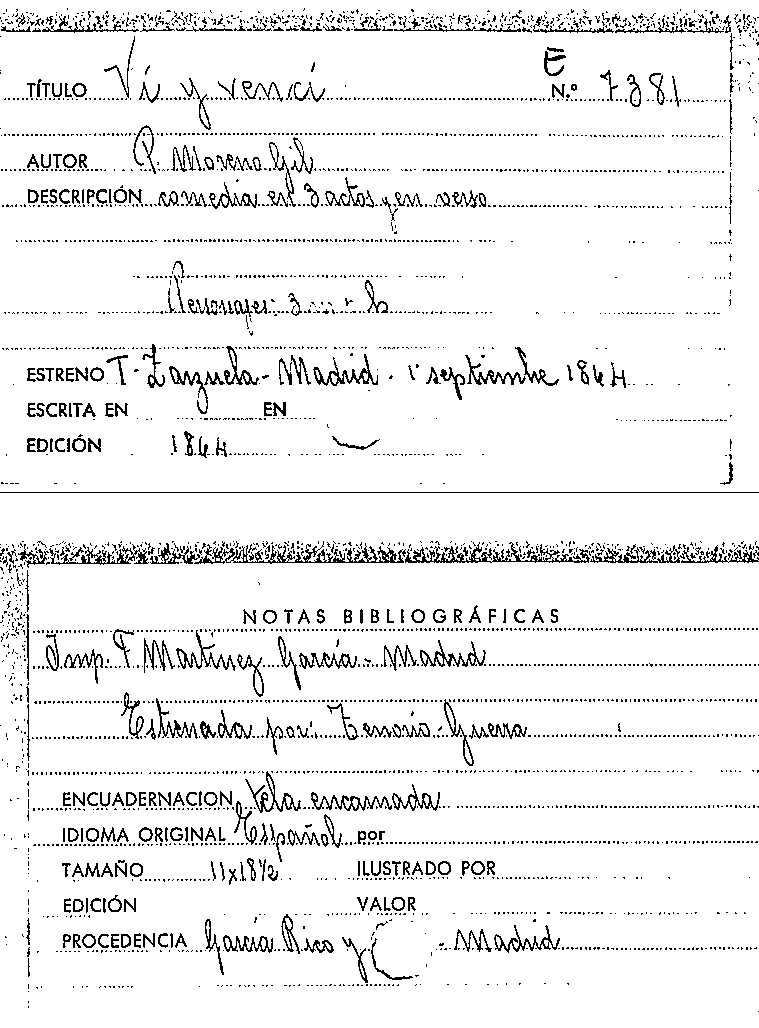 E
TÍTULO Ví y vencí N.º 7381
AUTOR P. Moreno Gil
DESCRIPCIÓN comedia en 3 actos y en verso
Personajes: 3
ESTRENO T. Zarzuela - Madrid - 1 septiembre 1864
ESCRITA EN EN
EDICIÓN 1864
NOTAS BIBLIOGRÁFICAS
Imp. F Martínez García - Madrid
Estrenada por: Tenorio - Guerra
ENCUADERNACION tela encarnada
IDIOMA ORIGINAL Español por
TAMAÑO 11x18½ ILUSTRADO POR
EDICIÓN VALOR
PROCEDENCIA García Rico y - Madrid